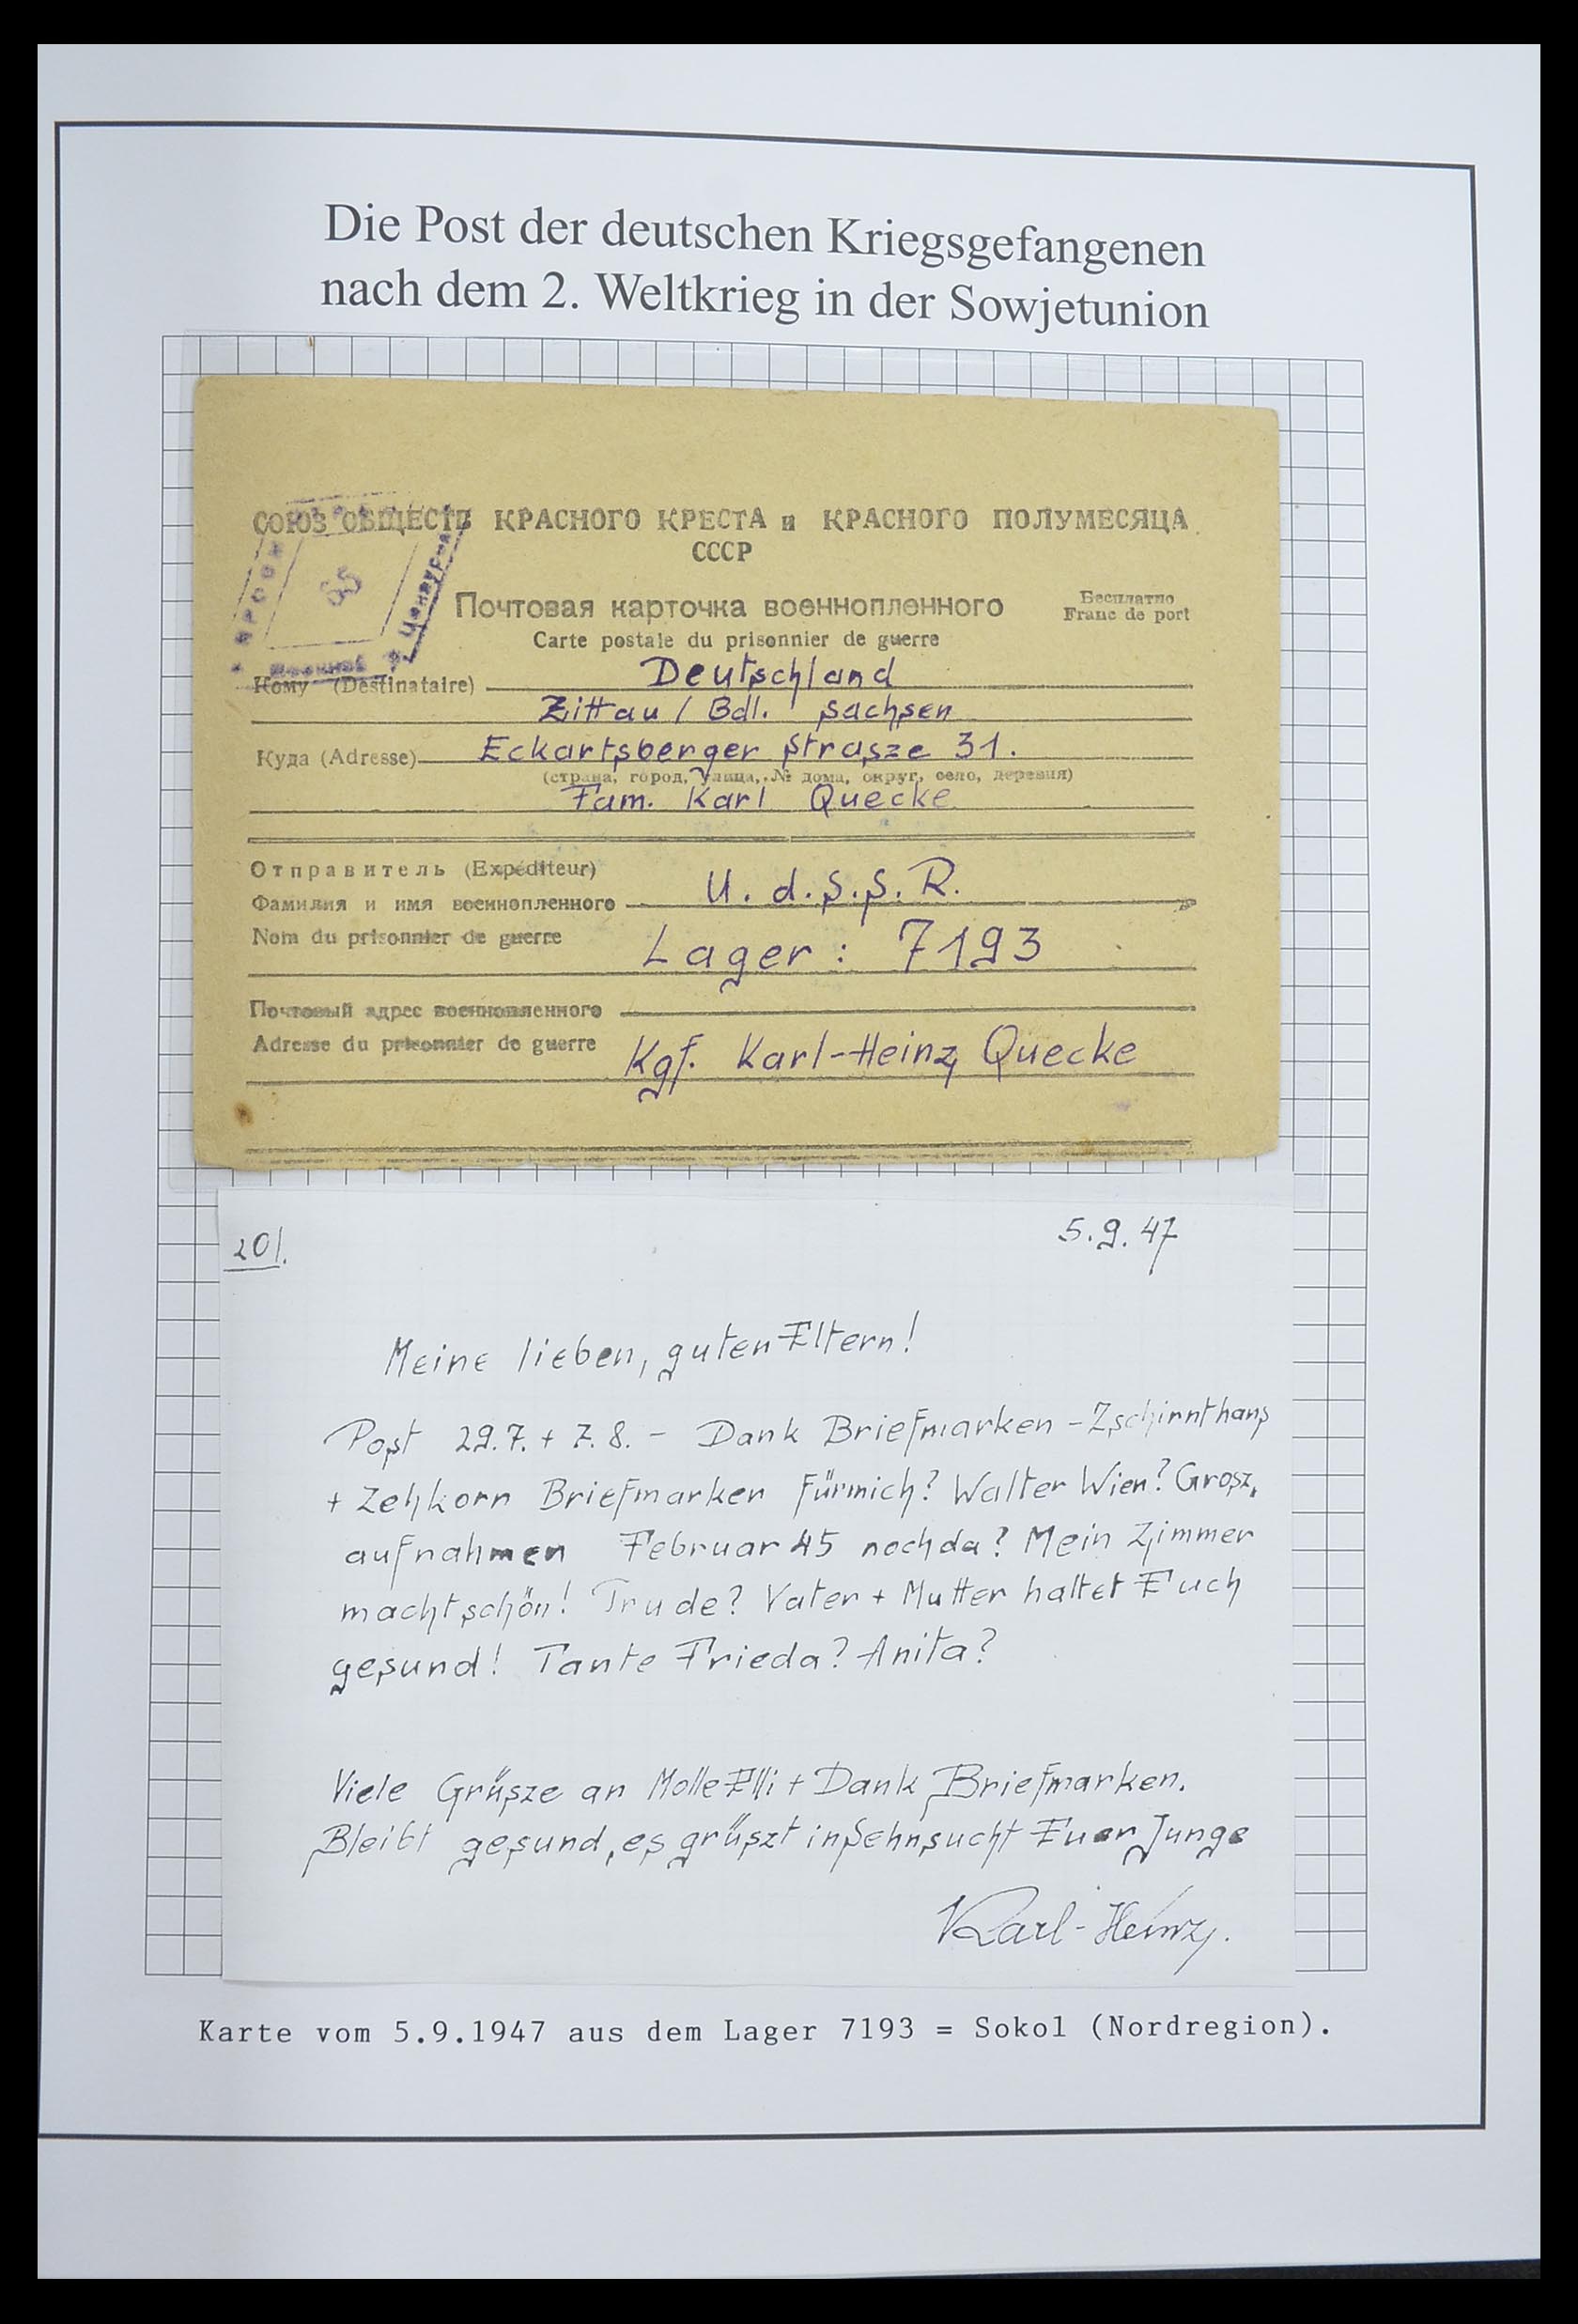 Die Post der deutschen Kriegsgefangenen
nach dem 2. Weltkrieg in der Sowjetunion
СОЮЗ ОБЩЕСТВ КРАСНОГО КРЕСТА и КРАСНОГО ПОЛУМЕСЯЦА
СССР
Почтовая карточка военнопленного
Бесплатно
Franc de port
Carte postale du prisonnier de guerre
Кому (Destinataire) Deutschland
Zittau / Bdl. Sachsen
Куда (Adresse) Eckartsberger Strasze 31.
(страна, город, улица, № дома, округ, село, деревня)
Fam. Karl Quecke
Отправитель (Expéditeur)
Фамилия и имя военнопленного U.d.S.S.R.
Nom du prisonnier de guerre Lager: 7193
Почтовый адрес военнопленного
Adresse du prisonnier de guerre Kgf. Karl-Heinz Quecke
20/. 5.9.47
Meine lieben, guten Eltern!
Post 29.7. + 7.8. - Dank Briefmarken -
+ Zehkorn Briefmarken für mich? Walter Wien? Grosz,
aufnahmen Februar 45 noch da? Mein Zimmer
macht schön! Trude? Vater + Mutter haltet Euch
gesund! Tante Frieda? Anita?
Viele Grüsze an Molle Elli + Dank Briefmarken.
Bleibt gesund, es grüszt in Sehnsucht Euer Junge
Karl-Heinz.
Karte vom 5.9.1947 aus dem Lager 7193 = Sokol (Nordregion).